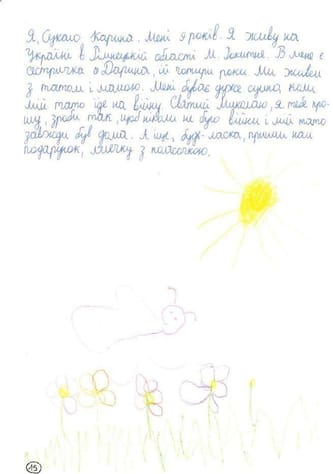 Я, Сукало Карина. Мені 9 років. Я живу на
Україні в Вінницькій області м. Іллінці. В мене є
сестричка Дарина, їй чотири роки. Ми живем
з татом і мамою. Мені буває дуже сумно, коли
мій тато іде на війну. Святий Миколаю, я тебе про-
шу, зроби так, щоб ніколи не було війни і мій тато
завжди був дома. А іще, будь-ласка, принеси нам
подарунок, лялечку з коласочкою.
15